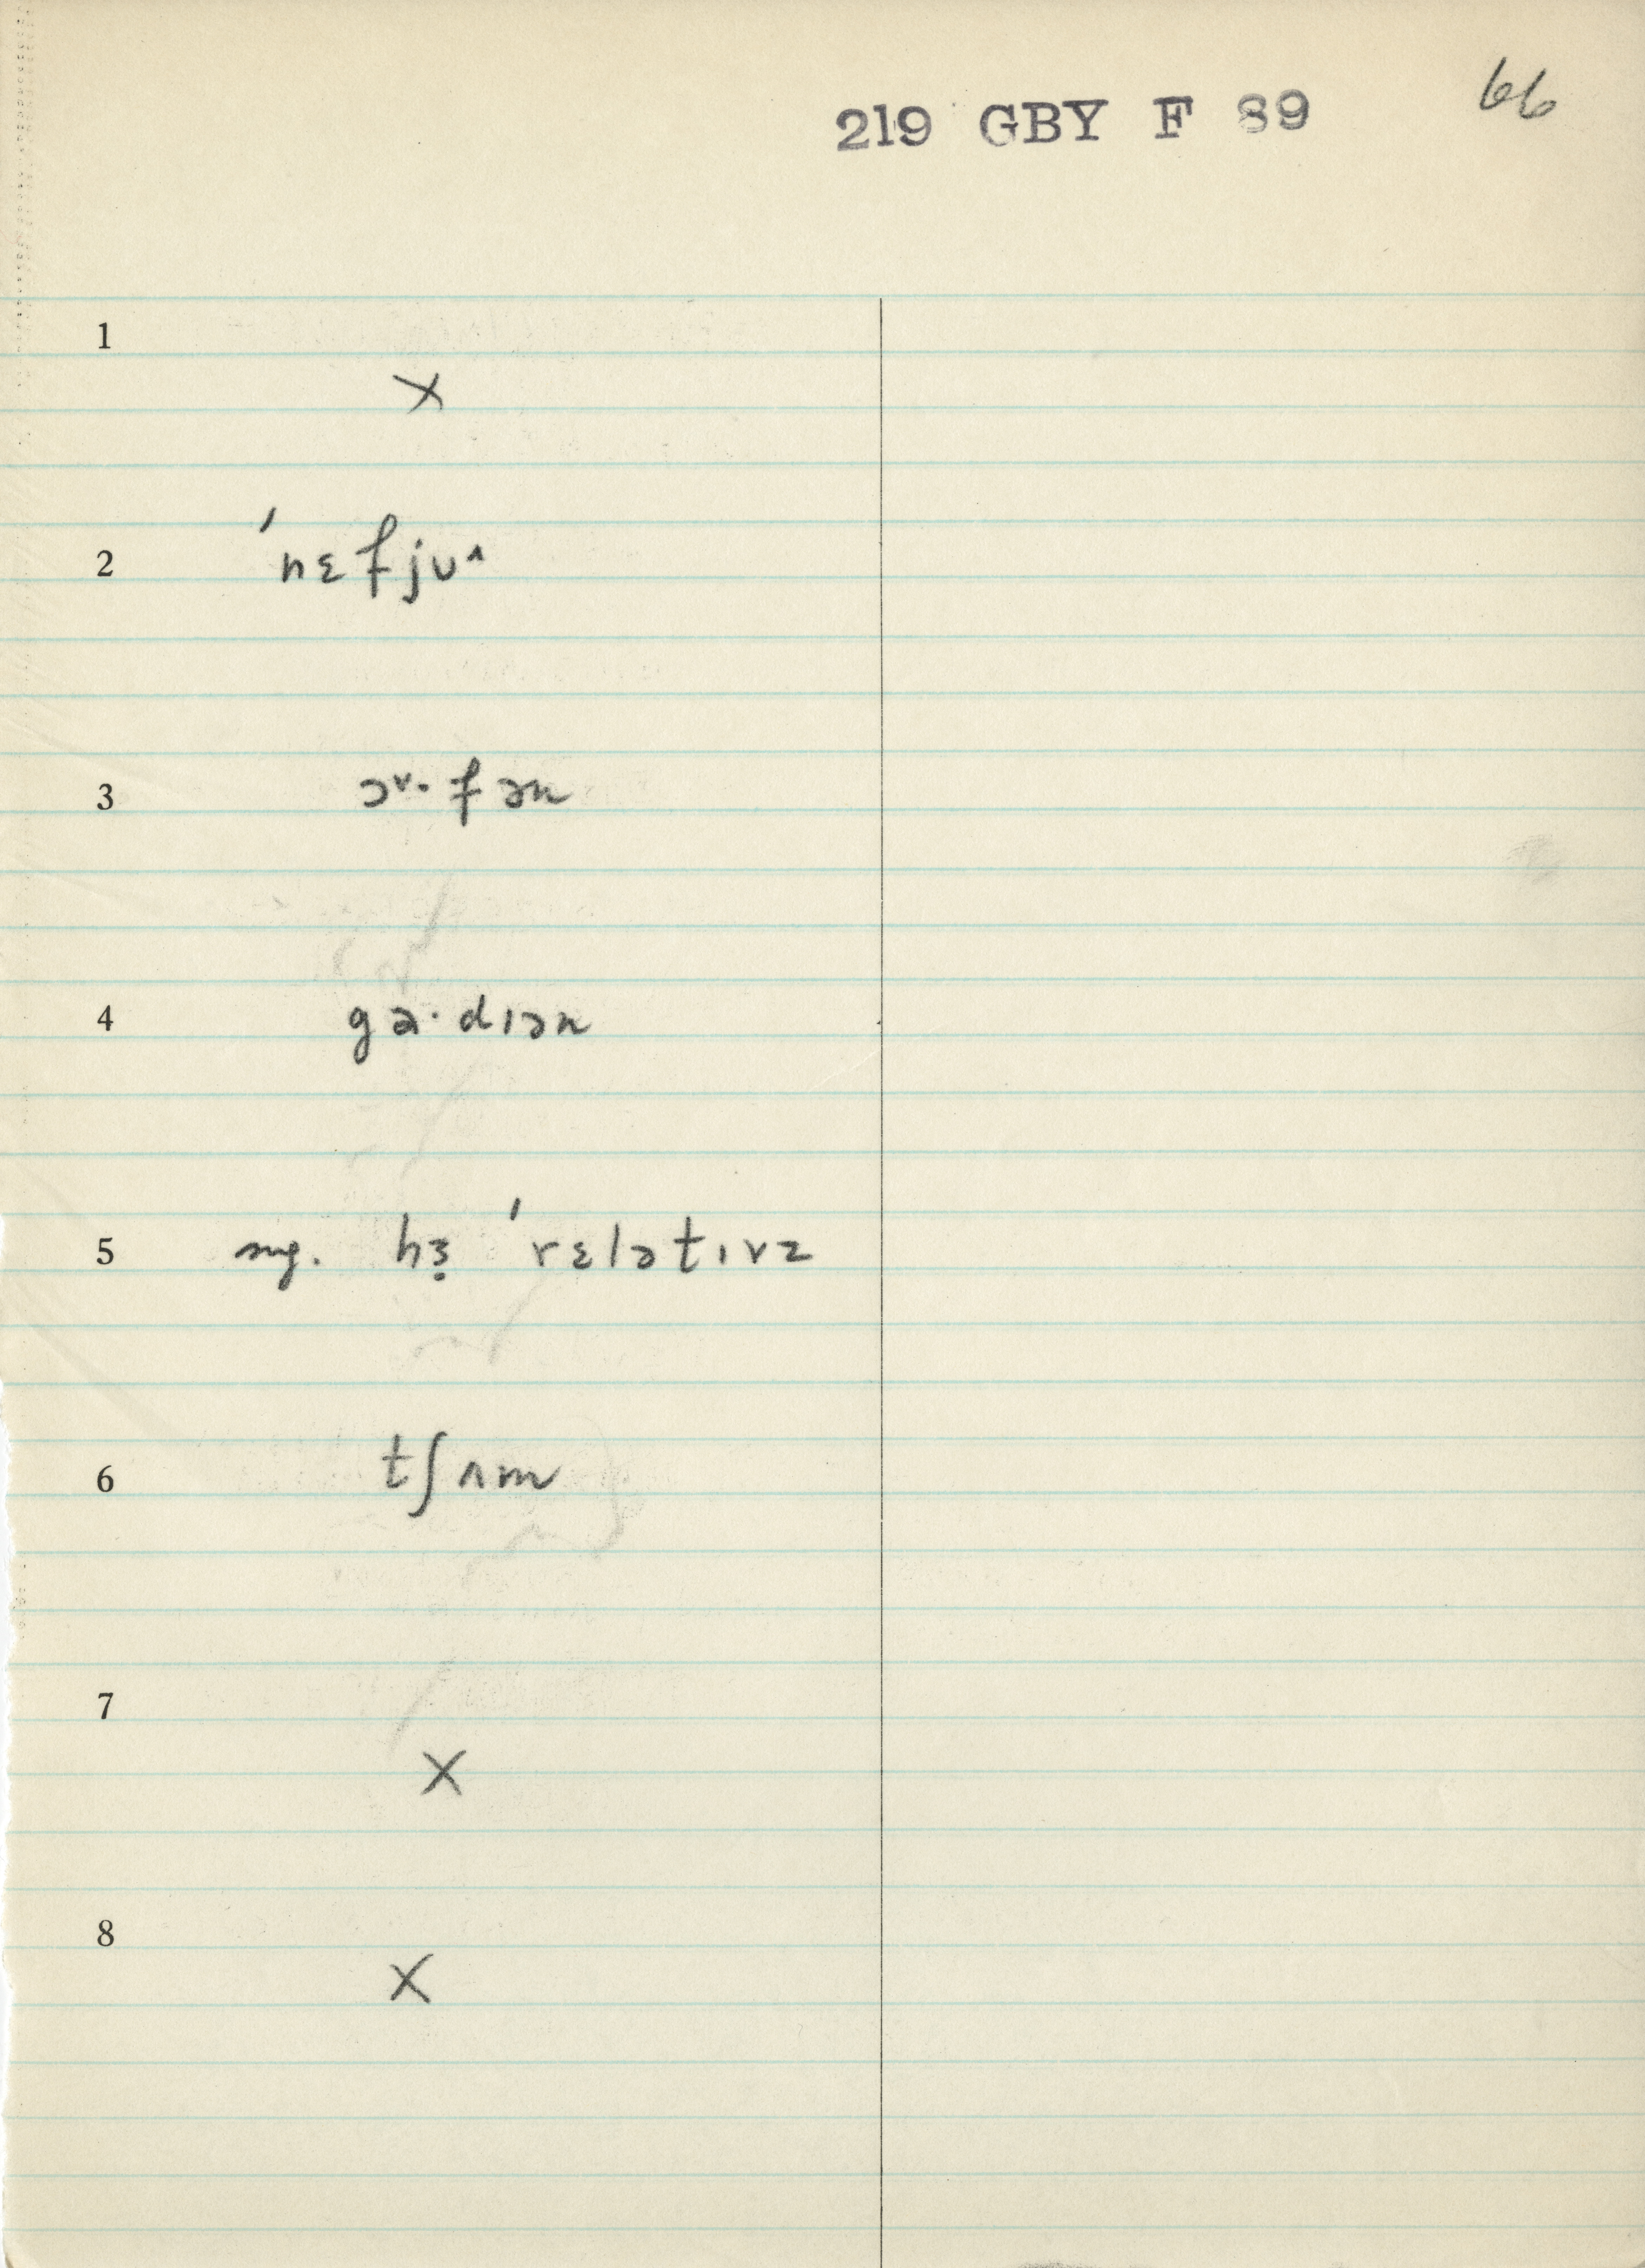 219 GBY F 89 66
1
×
2 ˈnɛfjuˆ
3 ɔᵛ·fən
4 ga·dɪən
5 sug. hɜ̣ ˈrɛlətɪvz
6 tʃʌm
7
×
8
×